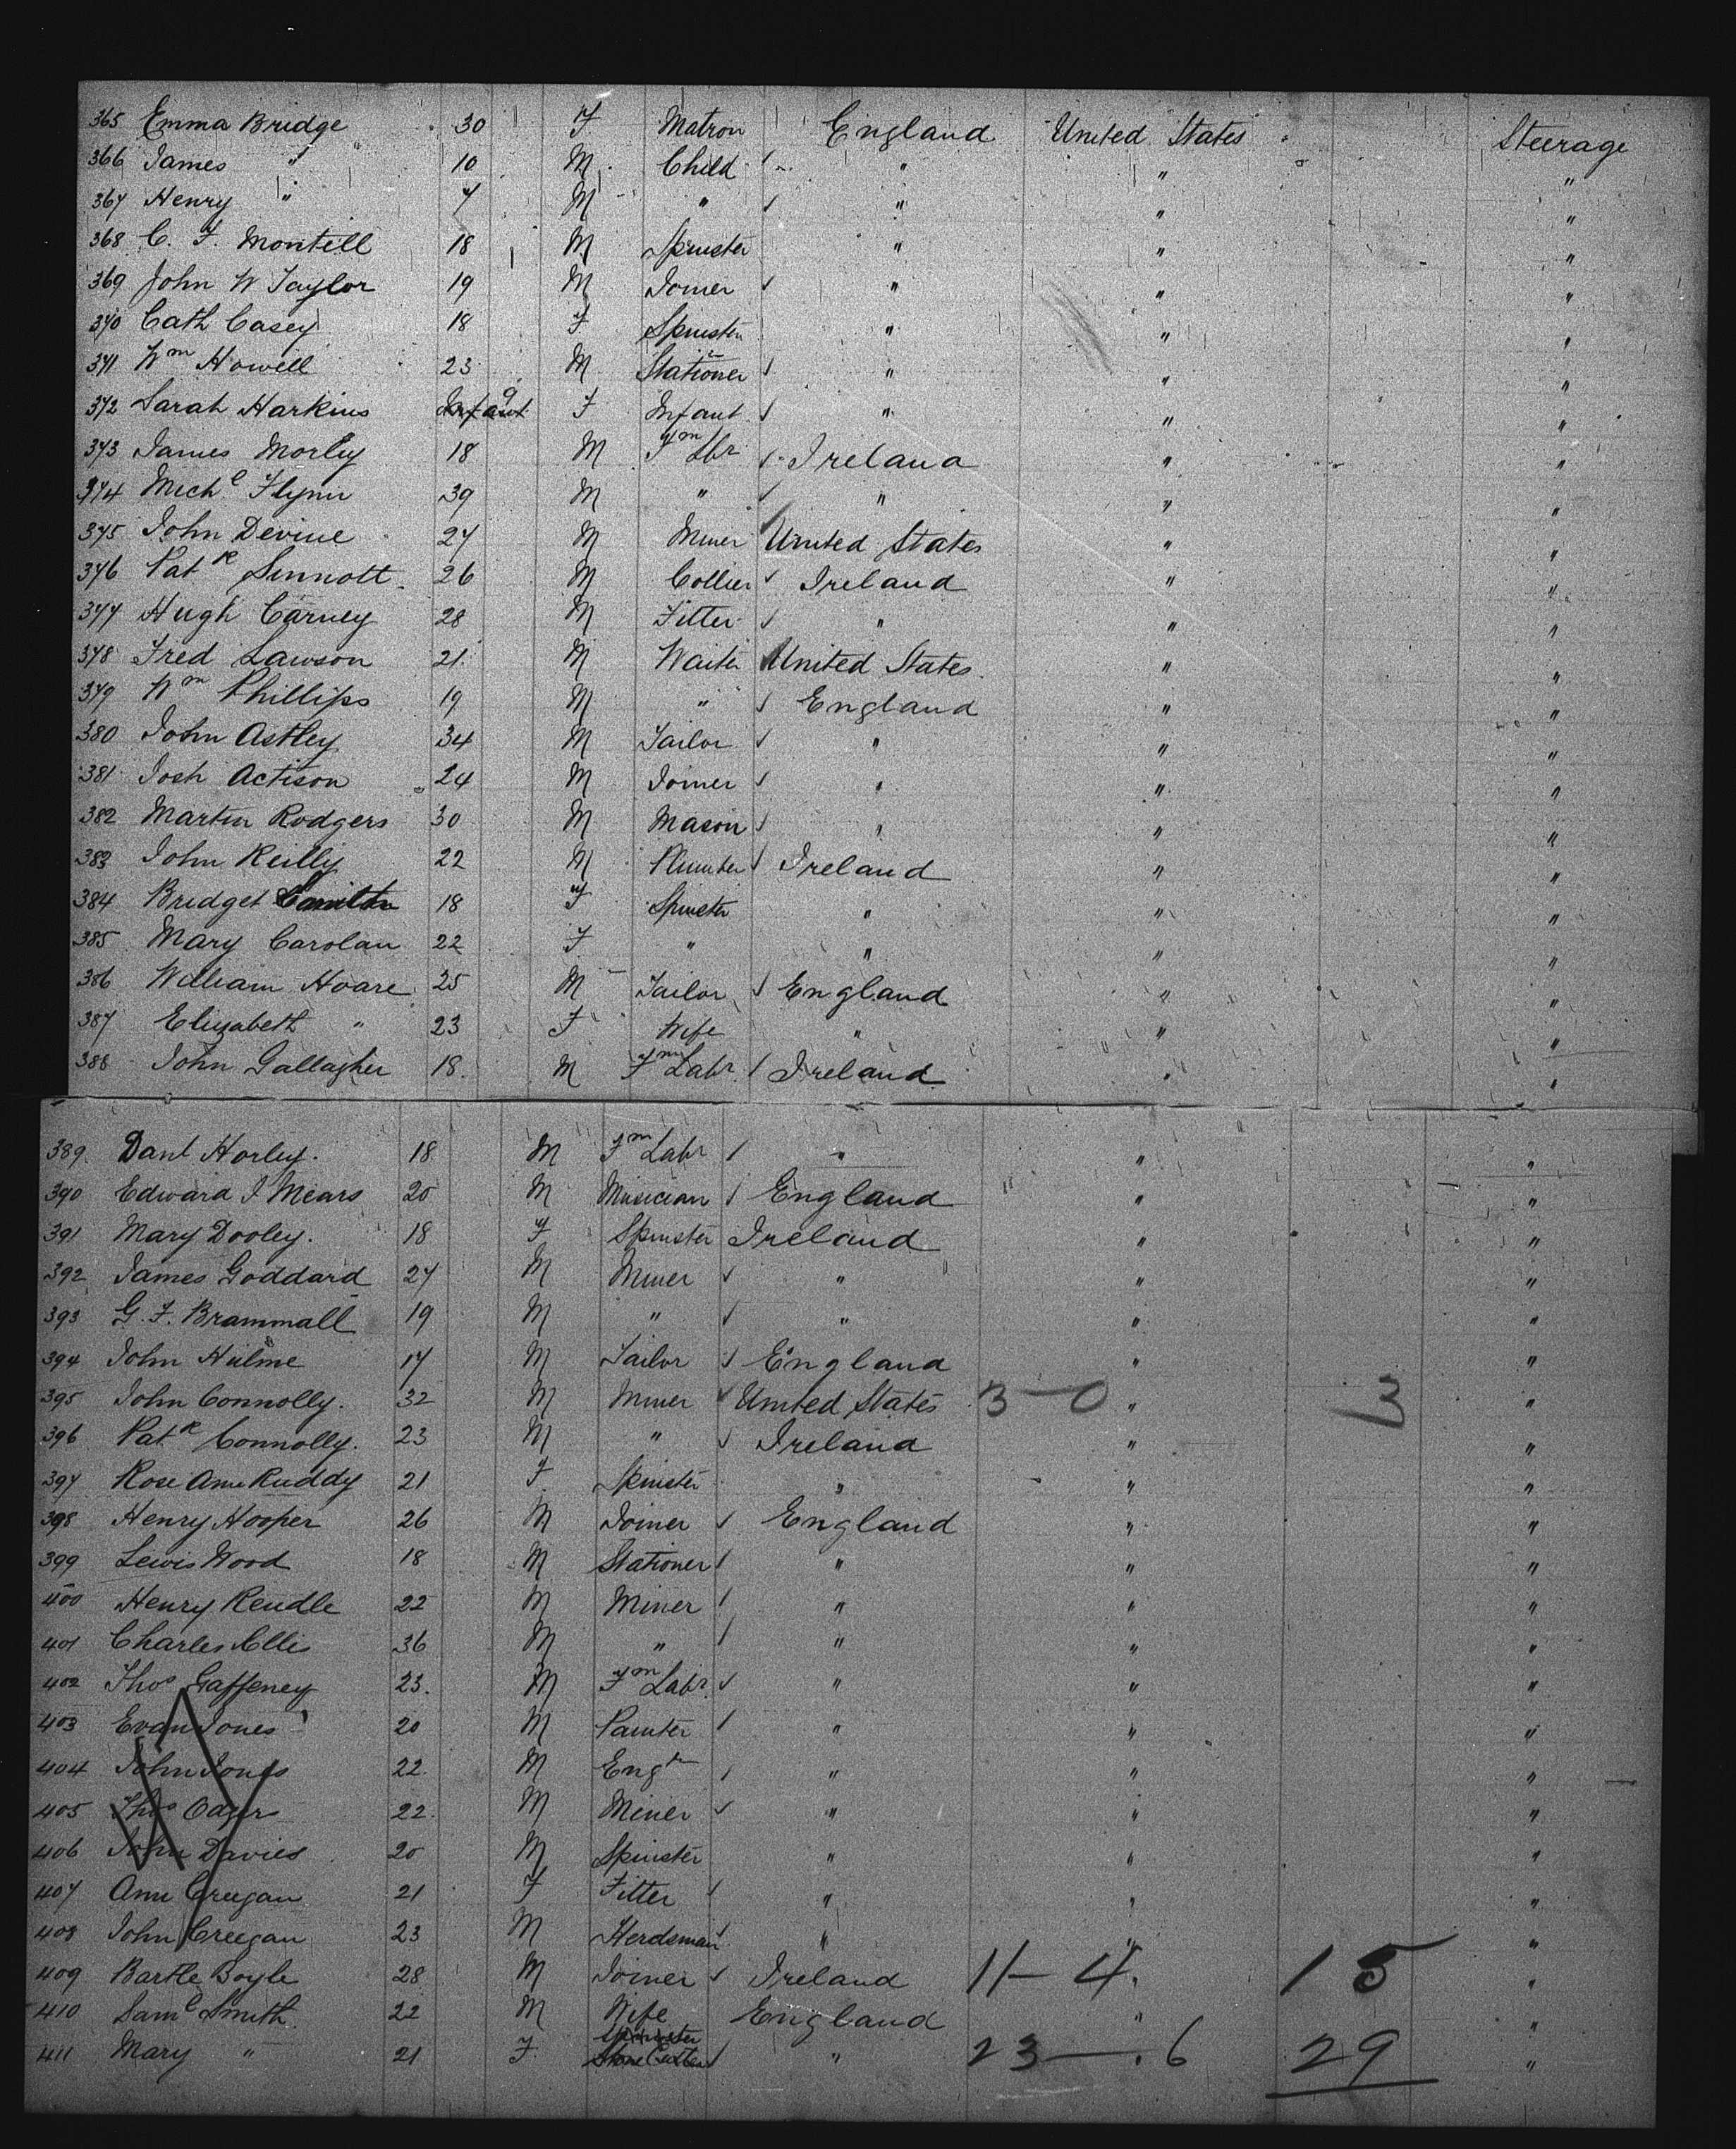 365 Emma Bridge 30 F Matron England United States Steerage
366 James " 10 M Child " " "
367 Henry " 7 M " " " "
368 C. F. Montell 18 M Spinster " " "
369 John W Taylor 19 M Joiner " " "
370 Cath Casey 18 F Spinster " " "
371 Wm Howell 23 M Stationer " " "
372 Sarah Harkins Infant 9 F Infant " " "
373 James Morley 18 M Fm Lbr Ireland " "
374 Michl Flynn 39 M " " " "
375 John Devine 27 M Miner United States " "
376 Patk Sinnott 26 M Collier Ireland " "
377 Hugh Carney 28 M Fitter " " "
378 Fred Lawson 21 M Waiter United States " "
379 Wm Phillips 19 M " England " "
380 John Astley 34 M Tailor " " "
381 Josh Actison 24 M Joiner " " "
382 Martin Rodgers 30 M Mason " " "
383 John Reilly 22 M Plumber Ireland " "
384 Bridget 18 F Spinster " " "
385 Mary Carolan 22 F " " " "
386 William Hoare 25 M Tailor England " "
387 Elizabeth " 23 F Wife " " "
388 John Gallagher 18 M Fm Labr Ireland " "
389 Danl Horley 18 M Fm Labr " " "
390 Edward J Mears 20 M Musician England " "
391 Mary Dooley 18 F Spinster Ireland " "
392 James Goddard 27 M Miner " " "
393 G. F. Brammall 19 M " " " "
394 John Hulme 17 M Tailor England " "
395 John Connolly 32 M Miner United States 3-0 " 3 "
396 Patk Connolly 23 M " Ireland " "
397 Rose Ann Ruddy 21 F Spinster " " "
398 Henry Hooper 26 M Joiner England " "
399 Lewis Wood 18 M Stationer " " "
400 Henry Rendle 22 M Miner " " "
401 Charles Ellis 36 M " " " "
402 Thos Gaffeney 23 M Fm Labr " " "
403 Evan Jones 20 M Painter " " "
404 John Jones 22 M Engr " " "
405 Thos Odgers 22 M Miner " " "
406 John Davies 20 M Spinster " " "
407 Ann Creegan 21 F Fitter " " "
408 John Creegan 23 M Herdsman " " "
409 Bartle Boyle 28 M Joiner Ireland 11-4 15 "
410 Saml Smith 22 M Wife England " "
411 Mary " 21 F Spinster Stone Cutter " 23-6 29 "